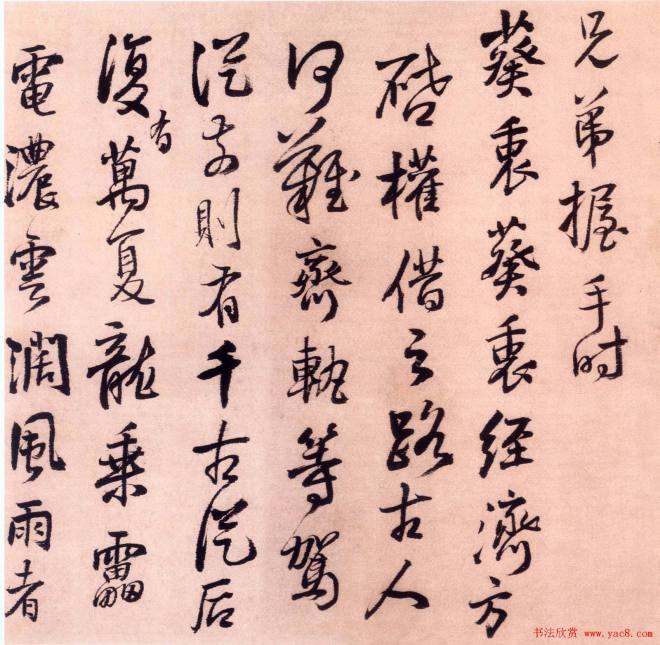 兄弟握手时
葵衷葵衷经济方
啓權借之路古人
何難齊軌等駕
從前則有千古從后
復有萬夏龍乘靁
電濃雲潤風雨者
书法欣赏 www.yac8.com